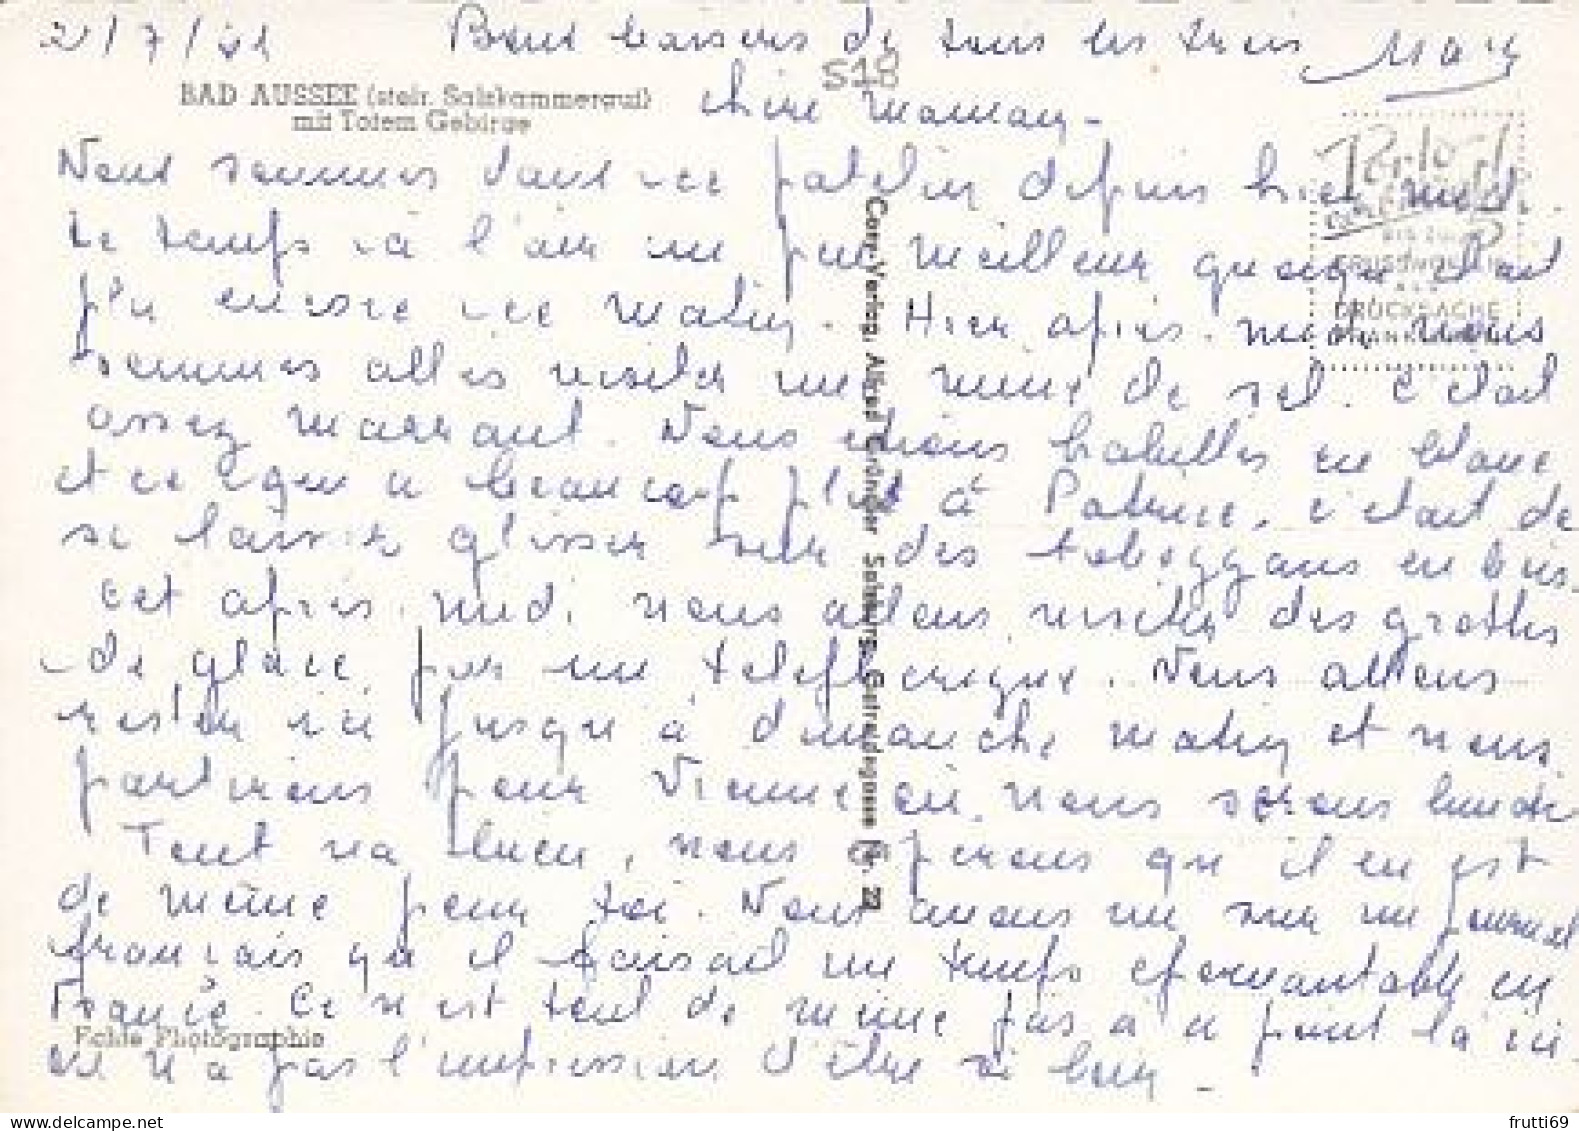 2/7/61
Bons baisers de tous les trois
518
BAD AUSSEE (steir. Salzkammergut)
mit Totem Gebirge
Chère Maman -
Nous sommes dans ce patelin depuis hier midi.
Le temps a l'air un peu meilleur quoique il ait
plu encore ce matin. Hier après-midi nous
sommes allés visiter une mine de sel. C'était
assez marrant. Nous étions habillés en blanc
et ce qui a beaucoup plu à Patrice, c'était de
se laisser glisser sur des toboggans en bois.
Cet après-midi nous allons visiter des grottes
de glace par un téléférique. Nous allons
rester ici jusqu'à dimanche matin et nous
partirons pour Vienne où nous serons lundi
Tout va bien, nous espérons qu'il en est
de même pour toi. Nous avons vu sur un journal
français qu'il faisait un temps épouvantable en
France. Ce n'est tout de même pas à ce point là ici
on n'a pas l'impression d'être si loin -
Echte Photographie
Corr.-Verlag, Alfred Gründler Salzburg, Getreidegasse Nr. 22
BIS ZU
GRUSSWORTEN
DRUCKSACHE
frutti69